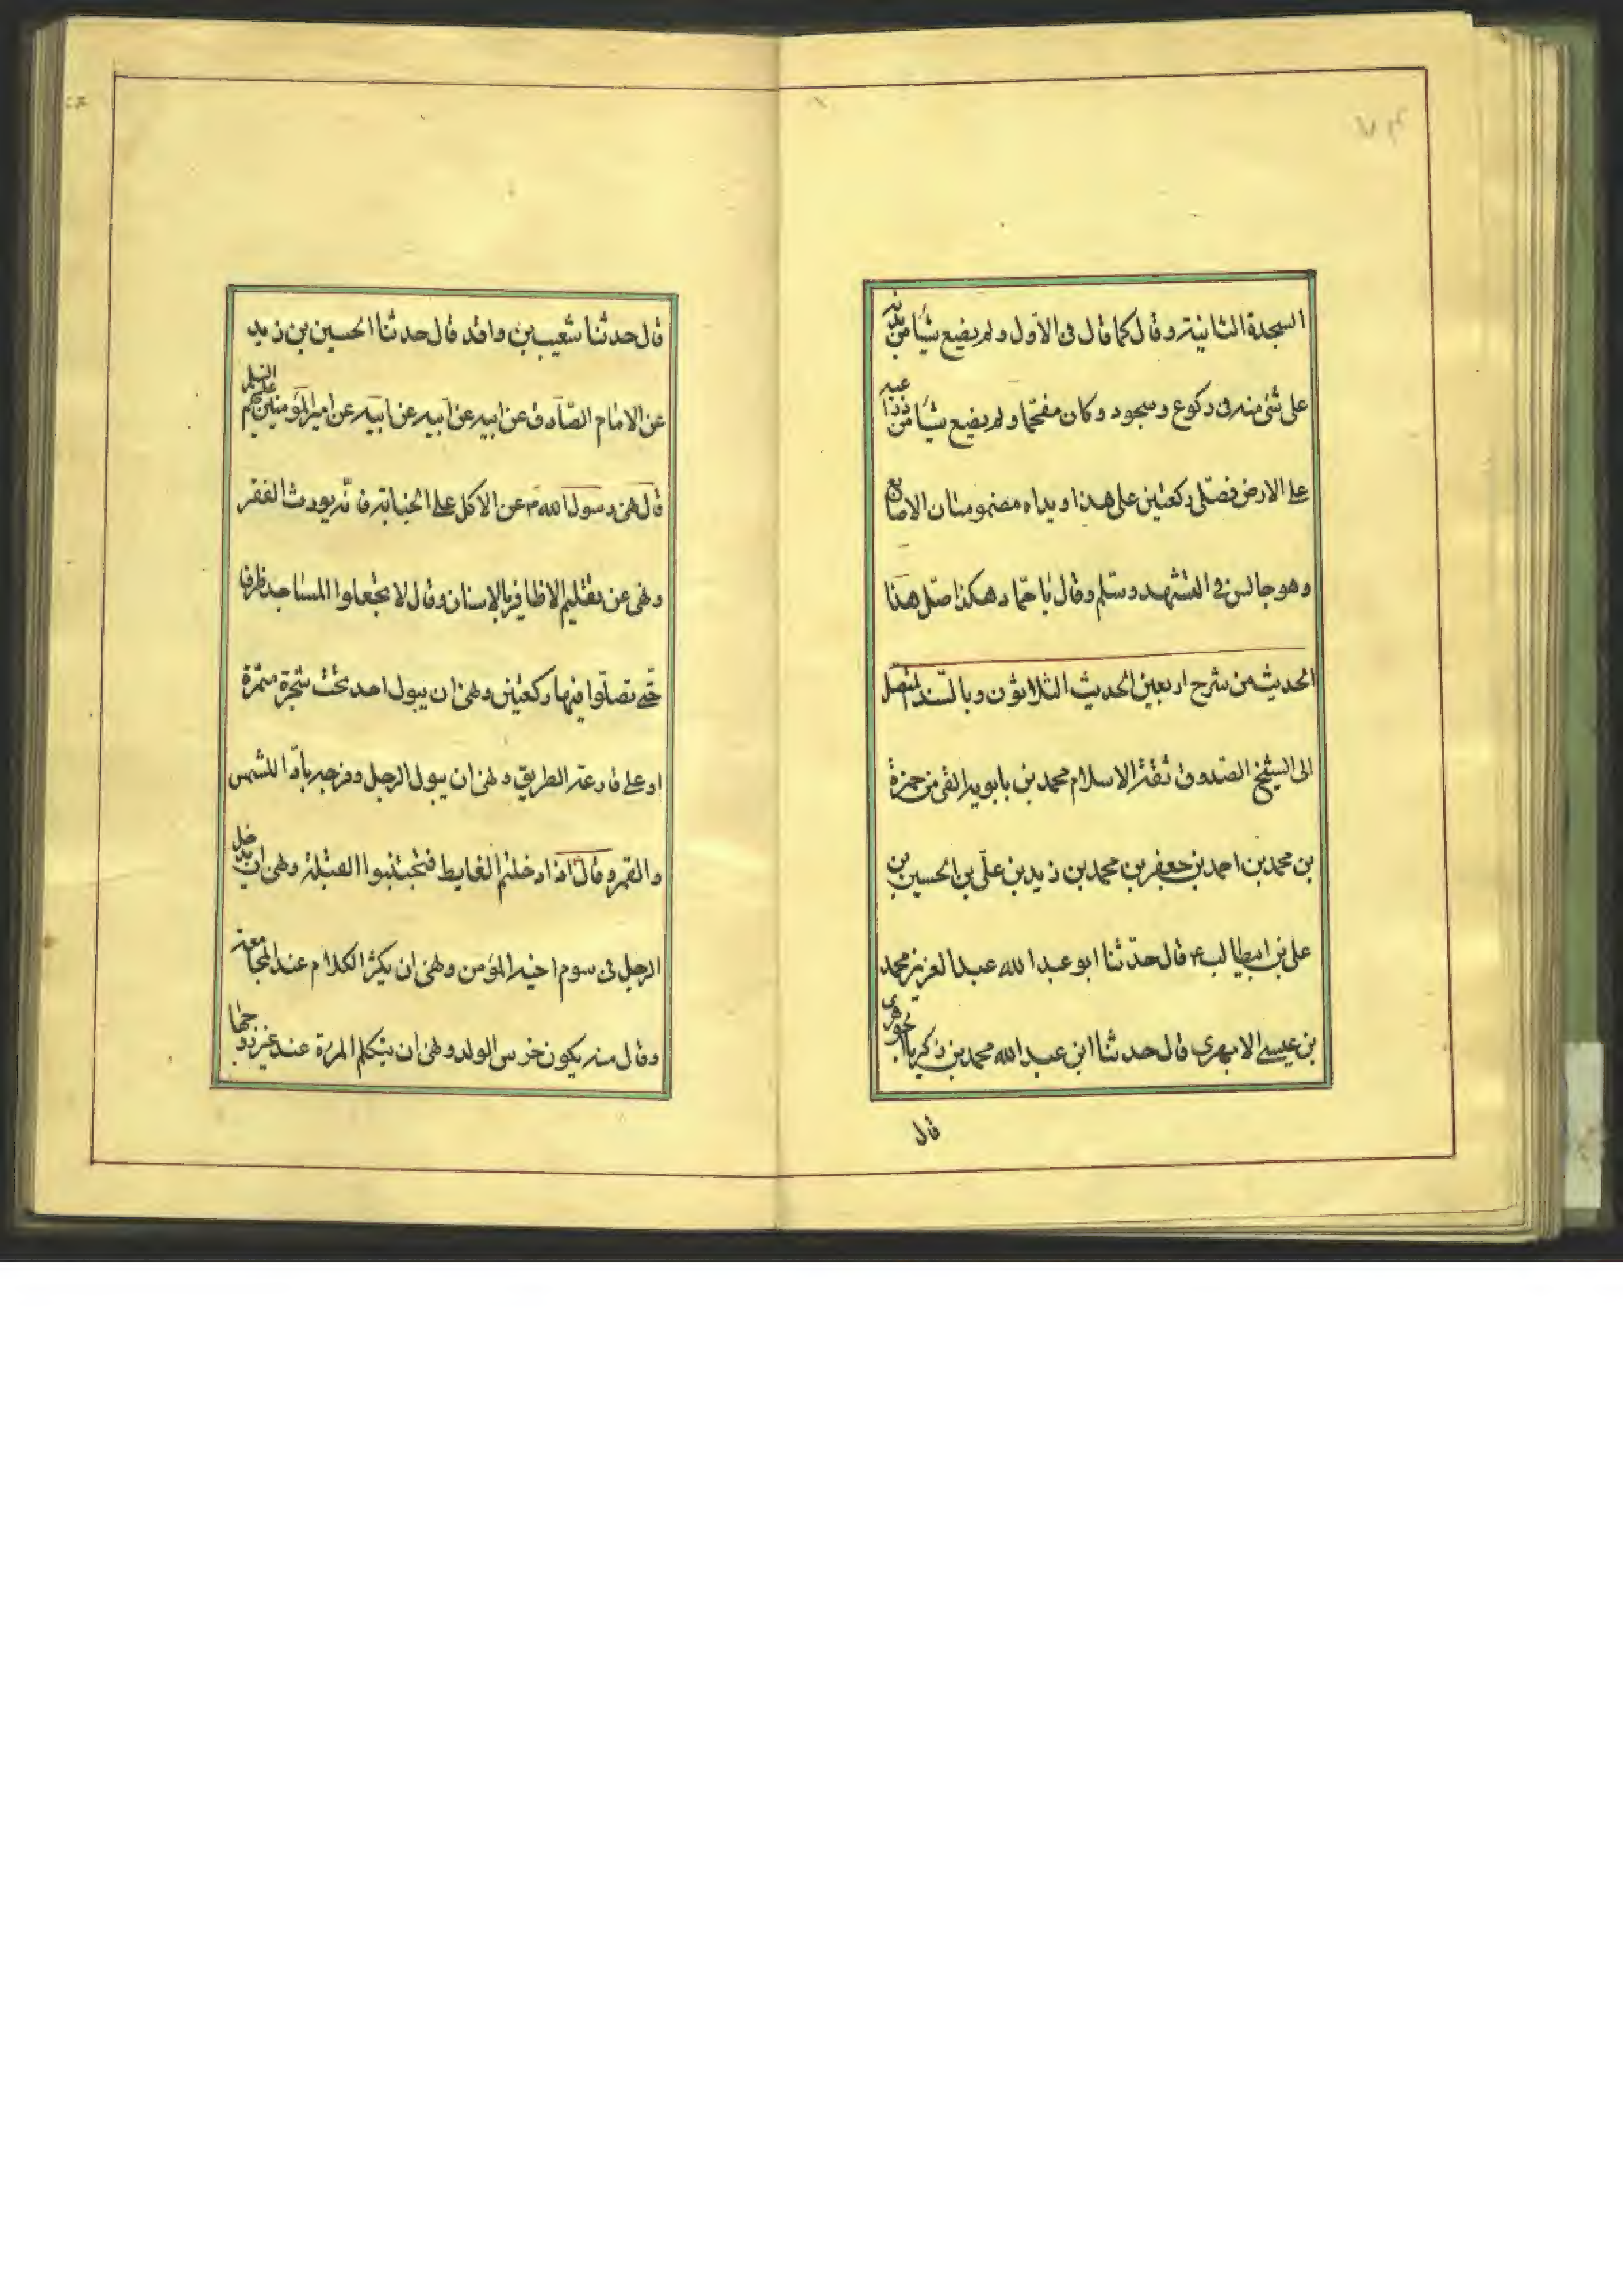 السجدة الثانية وقال كما قال فى الاول ولم يضع شيئا من بدنه
على شئ منه فى ركوع وسجود وكان مفتحا ولم يضع شيئا من ذراعيه
على الارض فصلى ركعتين على هذا ويداه مضمومتان الاصابع
وهو جالس فى التشهد وسلم وقال يا حماد هكذا صل هذا
الحديث من شرح اربعين الحديث الثلاثون وبالسند المتصل
الى الشيخ الصدوق ثقة الاسلام محمد بن بابويه القمى من حمزة
بن محمد بن احمد بن جعفر بن محمد بن زيد بن على بن الحسين بن
على بن ابيطالب ع قال حدثنا ابو عبد الله عبد العزيز محمد
بن عيسى الابهرى قال حدثنا ابن عبد الله محمد بن زكريا الجوهرى
قال
قال حدثنا شعيب بن واقد قال حدثنا الحسين بن زيد
عن الامام الصادق عن ابيه عن ابيه عن ابيه عن امير المؤمنين عليهم السلم
قال نهى رسول الله ص عن الاكل على الجنابة فانه يورث الفقر
ونهى عن تقليم الاظافير بالاسنان وقال لا تجعلوا المساجد طرقا
حتى تصلوا فيها ركعتين ونهى ان يبول احد تحت شجرة مثمرة
او على قارعة الطريق ونهى ان يبول الرجل وفرجه باد للشمس
والقمر وقال اذا دخلتم الغايط فتجنبوا القبلة ونهى ان يدخل
الرجل فى سوم اخيه المؤمن ونهى ان يكثر الكلام عند المجامعة
وقال منه يكون خرس الولد ونهى ان يتكلم المرئة عند غير زوجها